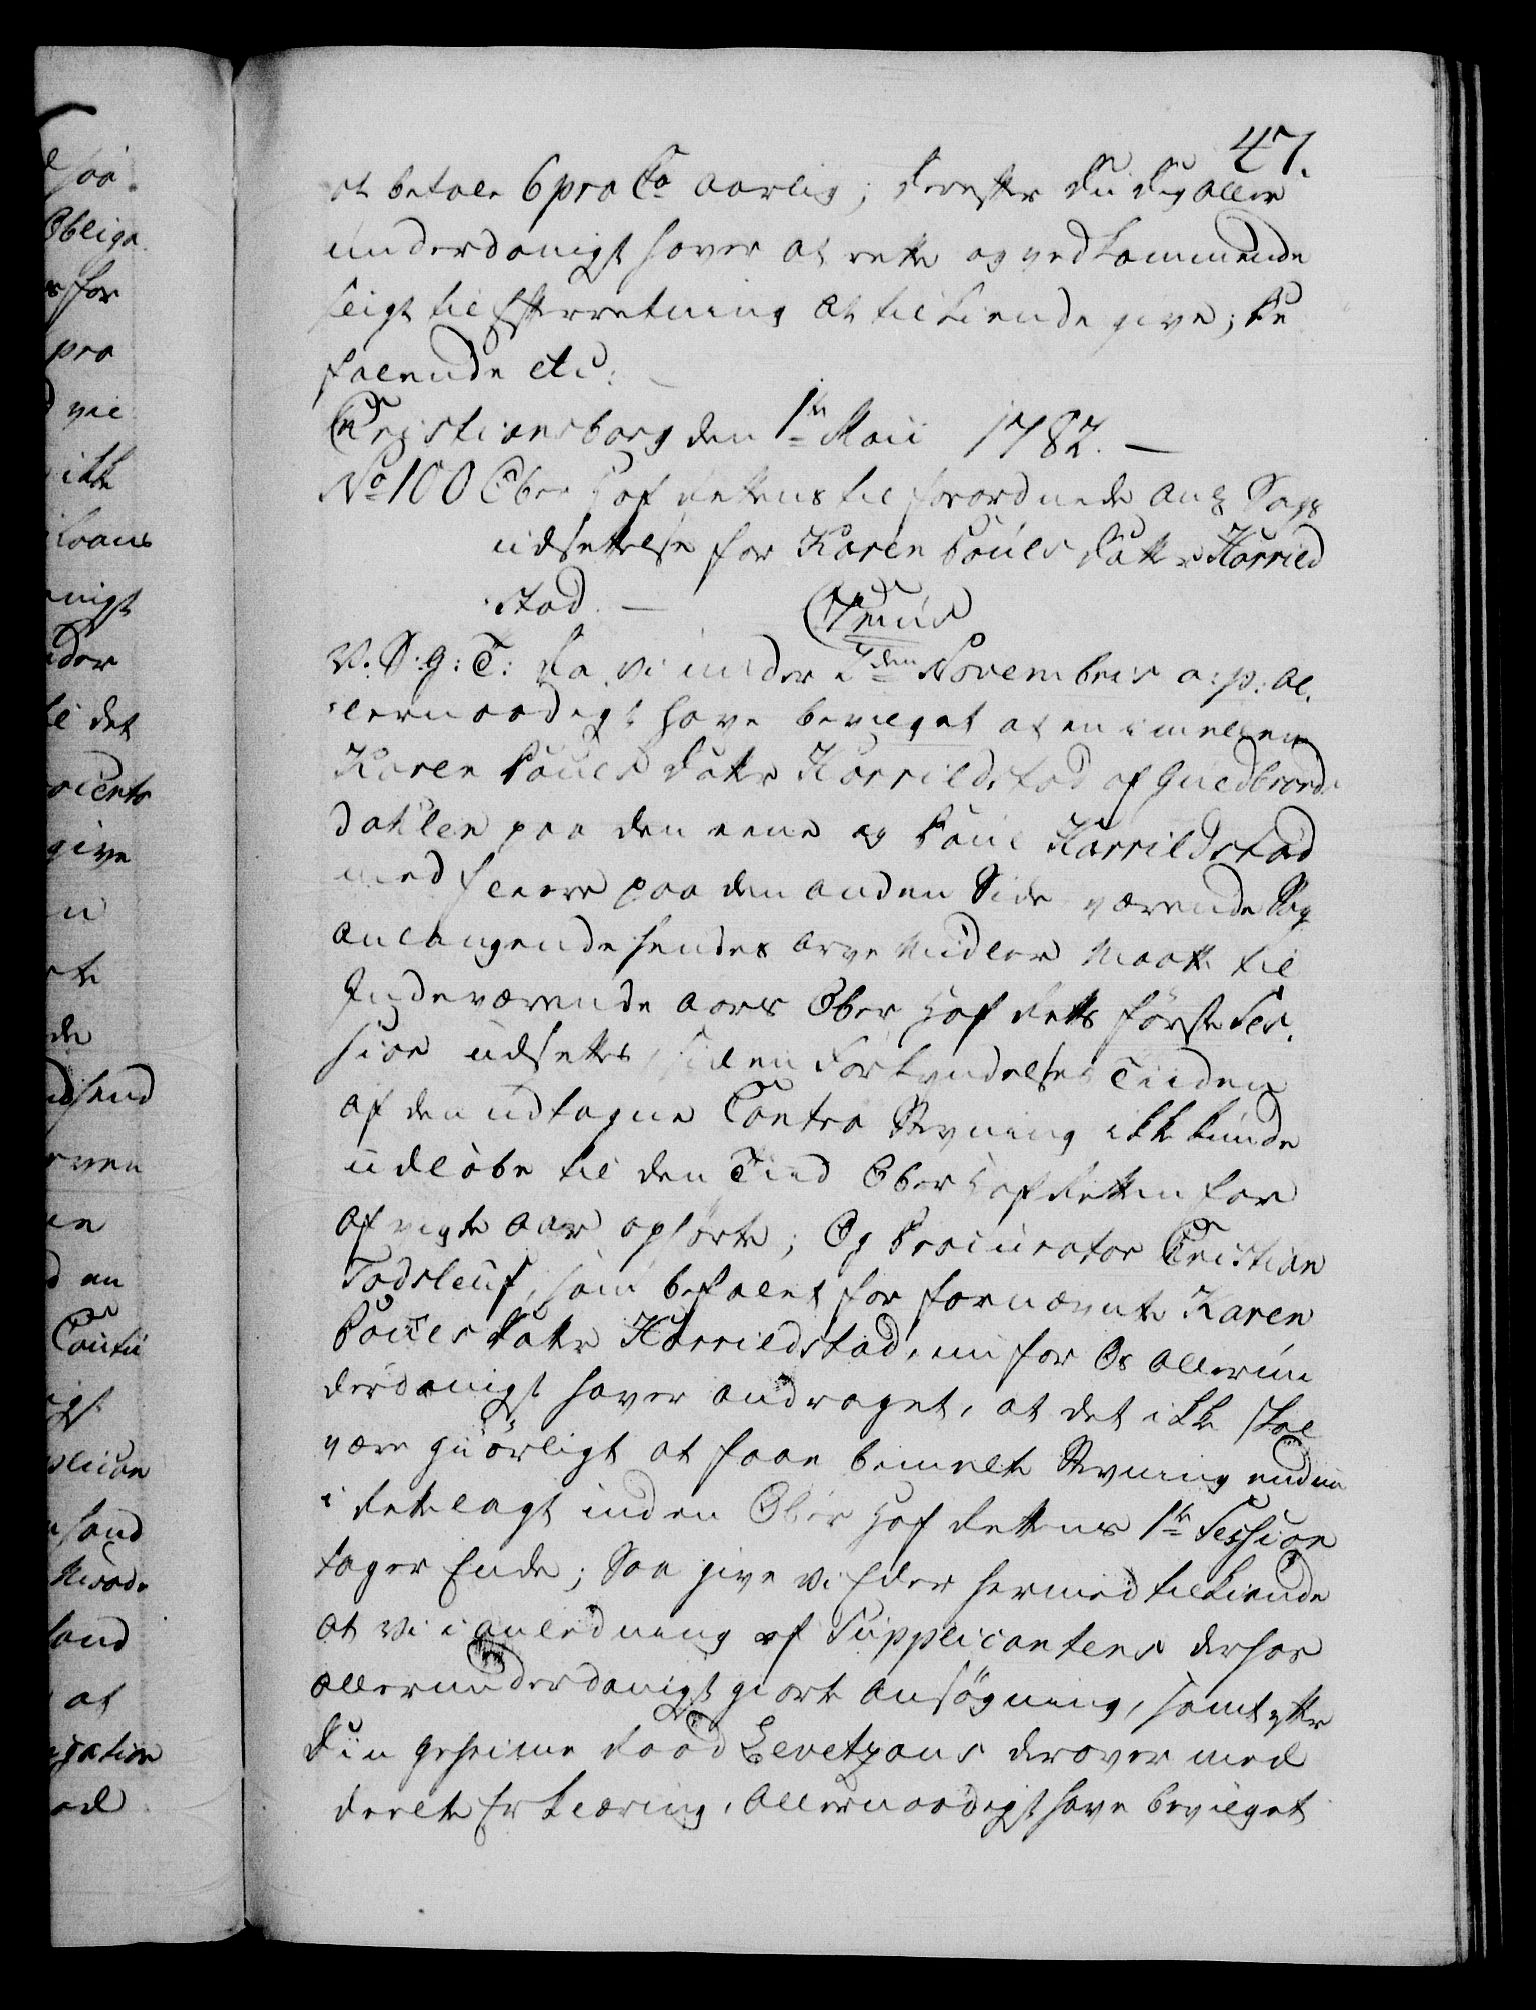 47.
at betale 6 pro Co aarlig; derefter du dig aller
underdanigst haver at rette og vedkommende
sligt til Efterretning at tilkiende give; be
falende etc:
Christiansborg den 1te Maii 1782. —
No 100 Ober Hof Rettens tilforordnede ang Sags
udsettelse for Karen Pouls Datter Harrild
stad. —
V. S: g: T: Da vi under 7den Novembris a: p: al,
lernaadigst have bevilget at en imellem
Karen Pouls Datter Harrildstad af Guldbrands
dahlen paa den eene og Poul Harrildstad
med fleere paa den anden Side værende Sag
anlangende hendes Arve Midler maatte til
Indeværende Aars Ober Hof Retts første Ses,
sion udsættes, siden Forkyndelses Tiiden
af den udtagne Contra Stevning ikke kunde
udløbe til den Tiid Ober Hof Retten for
afvigte Aar ophørte; Og Procurator Christian
Todsleuf, som befalet for fornævnte Karen
Pouels Datter Harrildstad, nu for Os allerun
derdanigst haver andraget, at det ikke skal
være giørligt at faae bemelte Stevning endnu
i Rette lagt inden Ober Hof Rettens 1te Session
tager Ende; Saa give vi Eder hermed tilkiende
at vi i anledning af Supplicantens derhos
allerunderdanigst giorte Ansøgning, samt efter
Din geheime Raad Levetzous derover med
deelte Erklæring, allernaadigst have bevilget